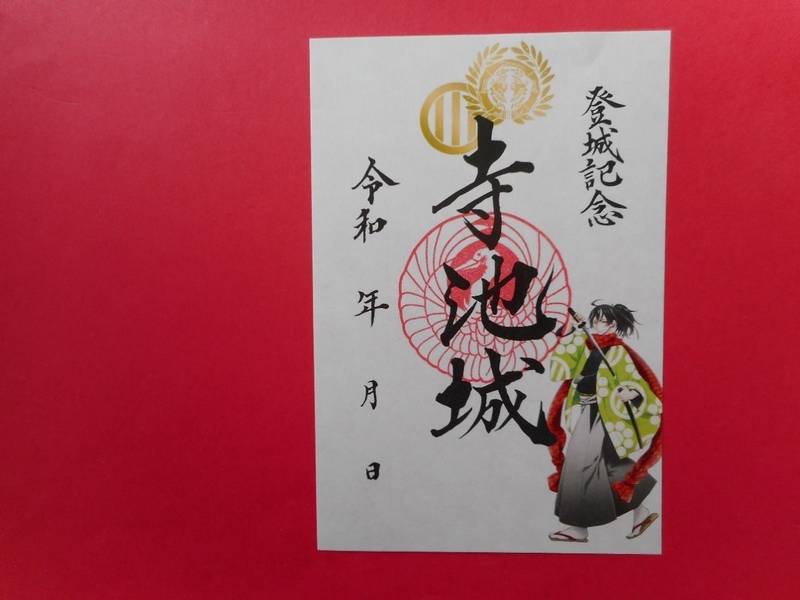 登城記念
寺池城
令和 年 月 日